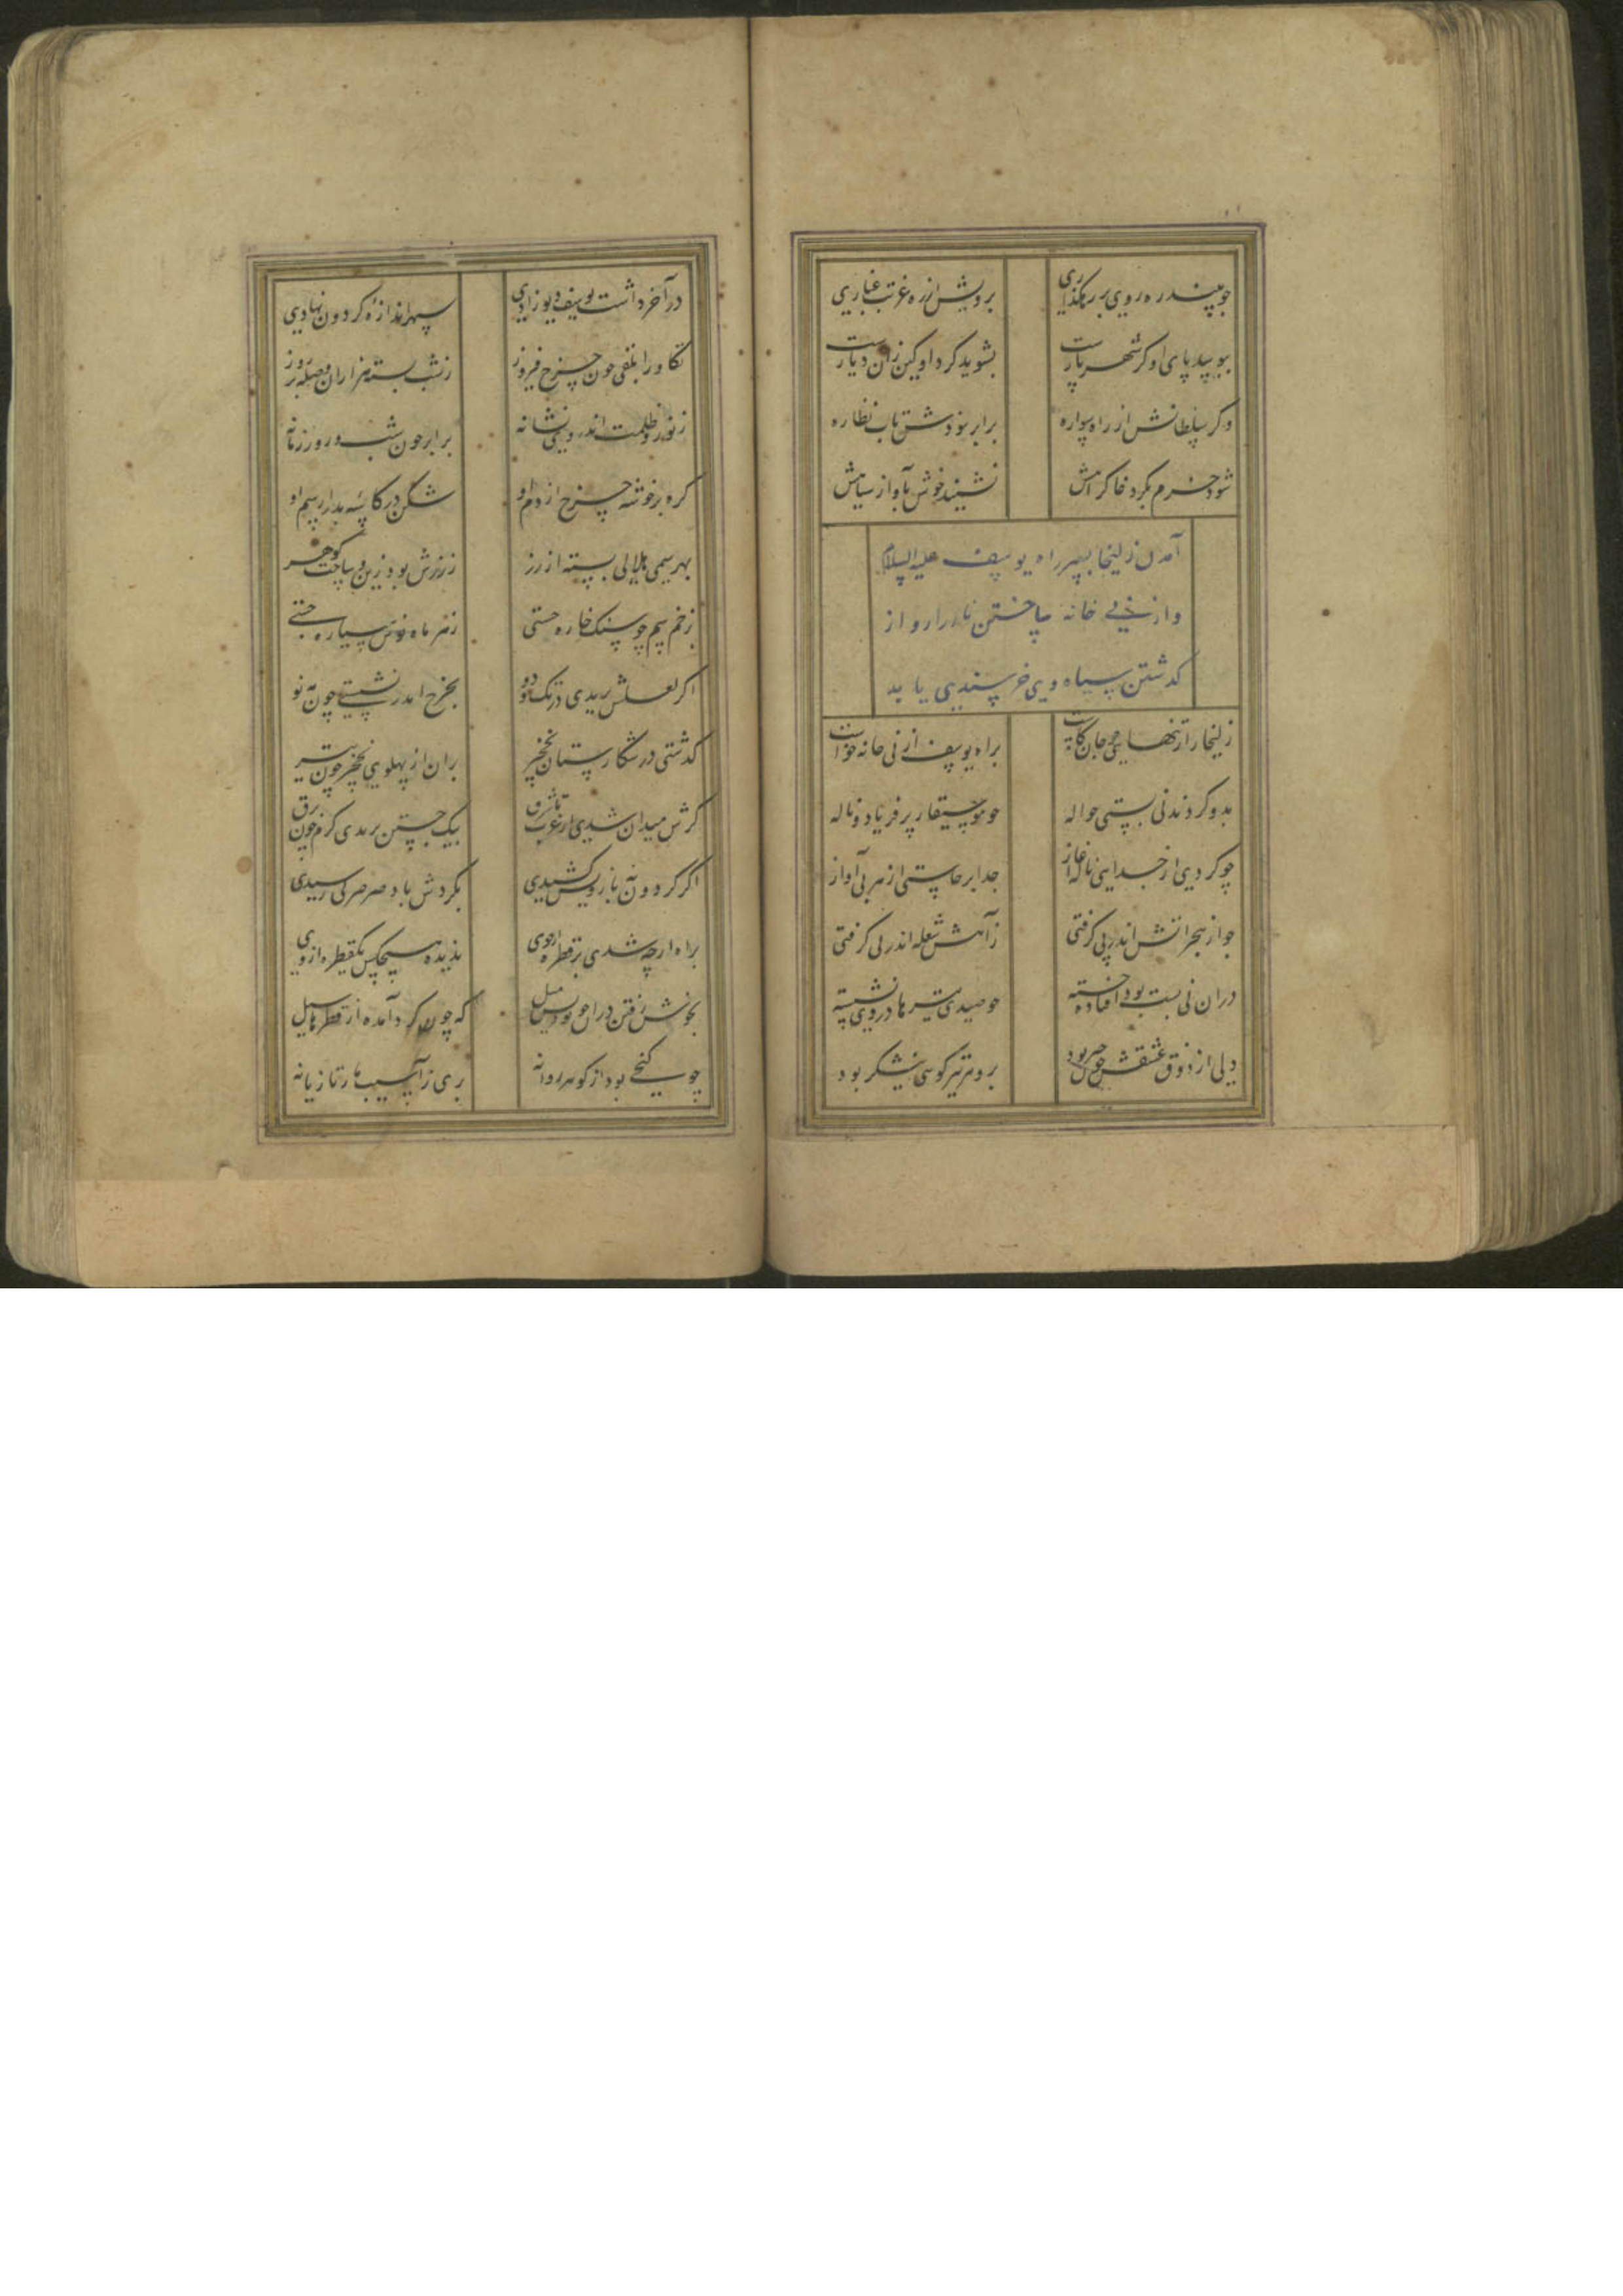 چو بیند ره روی بر رهگذاری برویش از ره غربت غباری
ببوسد پای او کز شهر یارست بشوید گرد او کین زان دیارست
وگر سلطانش از راه سواره برابر نبودش تاب نظاره
شود خرم بگرد خاک راهش نشیند خوش بآواز سپاهش
آمدن زلیخا بسر راه یوسف علیه السلام
و از نی خانه ساختن تا از آواز
گذشتن سپاه وی خرسندی یابد
زلیخا را ز تنهایی چو جان کاست براه یوسف از نی خانه خواست
بدو کردند نی بستی حواله چو موسیقار پر فریاد و ناله
چو کردی از جدایی ناله آغاز جدا برخاستی از هر نی آواز
چو از هجر آتش اندر پی گرفتی ز آهش شعله اندر نی گرفتی
در ان نی بست بود افتاده خسته چو صیدی تیرها در وی نشسته
ولی از ذوق عشقش چون خبر بود برو هر تیر گویی نیشکر بود
در آخر داشت یوسف دیو زادی سپهر اندازه گردون نهادی
تکاور ابلقی چون چرخ فیروز ز شب بسته هزاران وصله بر روز
ز نور و ظلمت اندر وی نشانه برابر چون شب و روز زمانه
گره بر خوشه چرخ از دم او شکن در کاسه بدر از سم او
بهر سمی هلالی بسته از زر ز زرش بود زین و ساخت گوهر
ز زخم سم چو سنگ خاره خستی ز هر ماه نوش سیاره جستی
اگر لعلش پریدی در تک و دو بچرخ اندر نشستی چون مه نو
گذشتی در شکارستان نخچیر بران از پهلوی نخچیر چون تیر
گرش میدان شدی از غرب تا شرق بیک جستن بریدی گرم چون برق
اگر گردون نه باز ویش کشیدی بگردش باد صرصر کی رسیدی
براه ارچه شدی تر قطره از خوی ندیده هیچکس یک قطره از وی
بخوش رفتن در ان جو بودش میل که چون گرد آمده از قطرها سیل
چو گنجی بود از گوهر روانه بری ز آسیب مار تازیانه